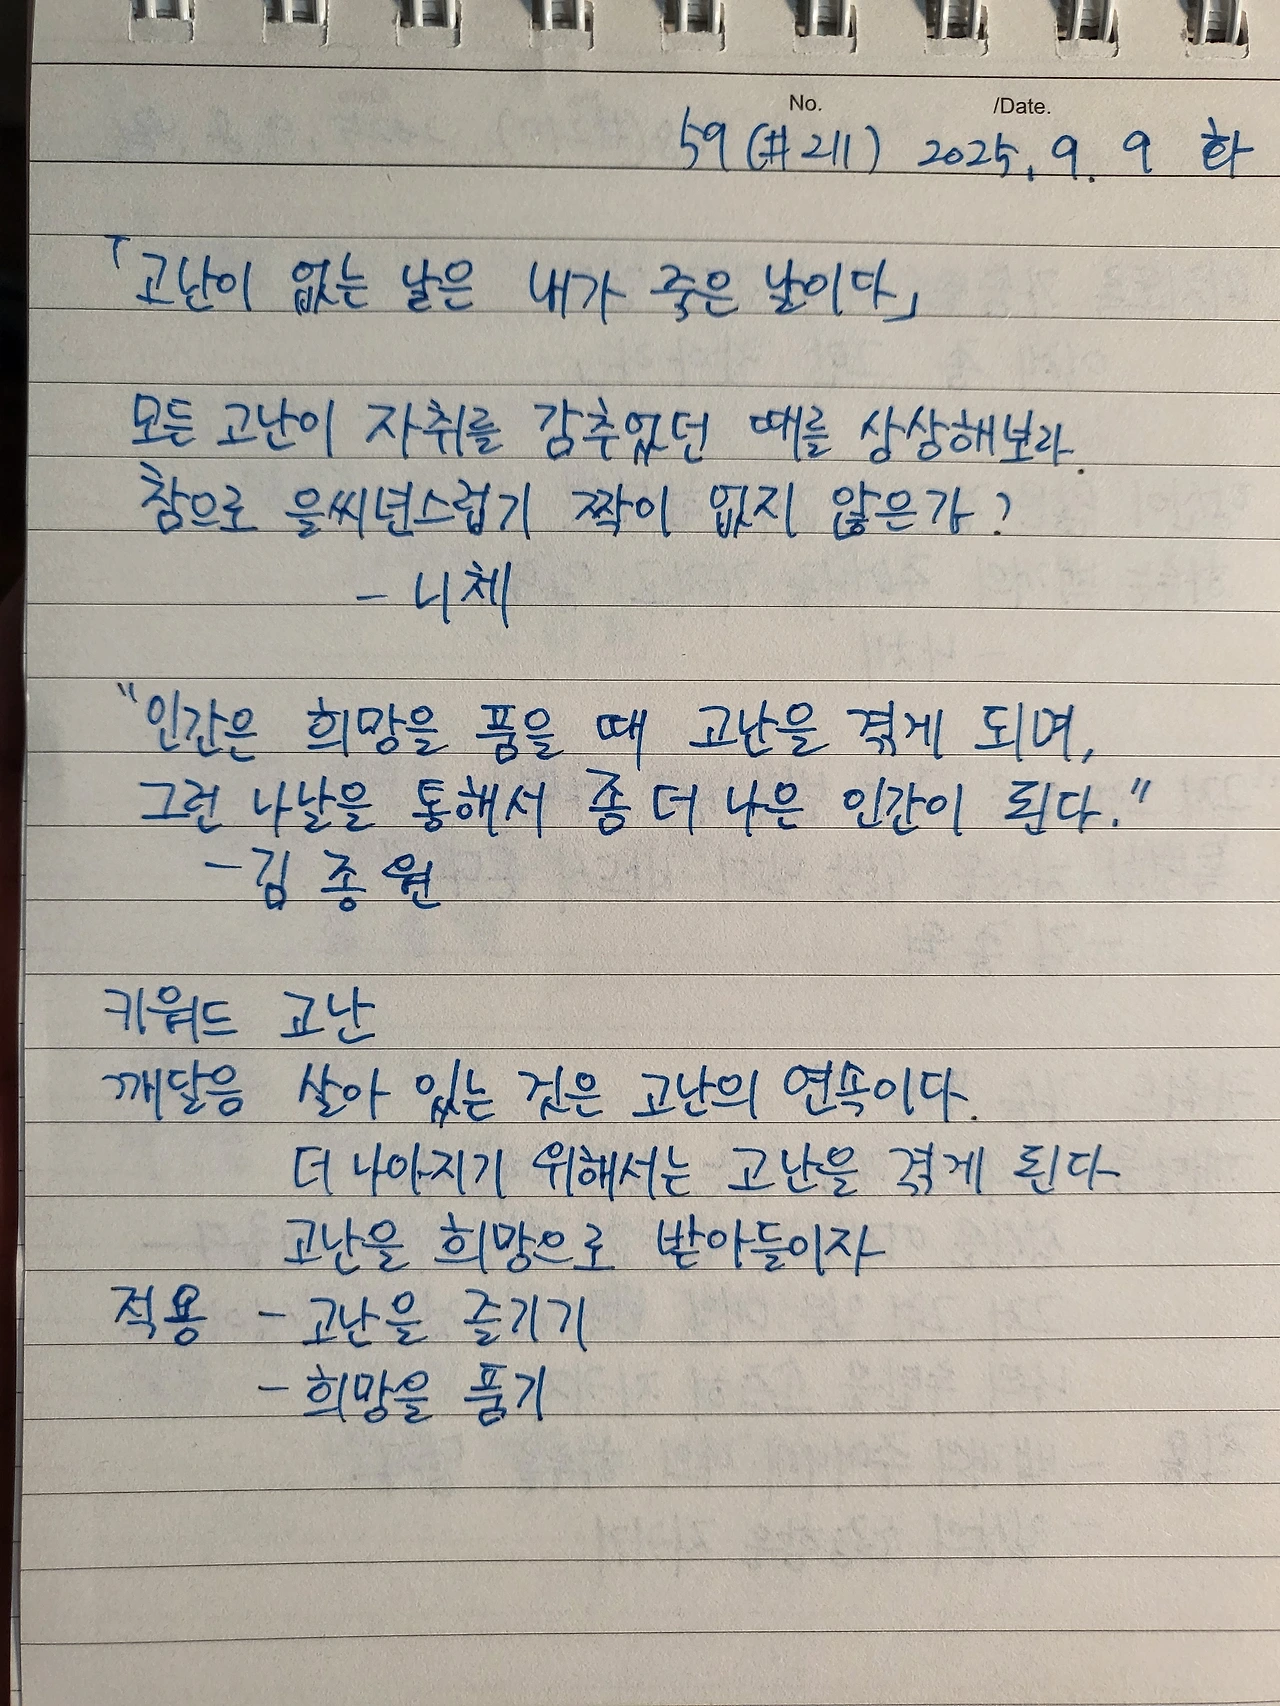 No. /Date.
59 (#211) 2025. 9. 9 화
「고난이 없는 날은 내가 죽은 날이다」
모든 고난이 자취를 감추었던 때를 상상해보라.
참으로 을씨년스럽기 짝이 없지 않은가?
- 니체
"인간은 희망을 품을 때 고난을 겪게 되며,
그런 나날을 통해서 좀 더 나은 인간이 된다."
- 김종원
키워드 고난
깨달음 살아 있는 것은 고난의 연속이다.
더 나아지기 위해서는 고난을 겪게 된다
고난을 희망으로 받아들이자
적용 - 고난을 즐기기
- 희망을 품기